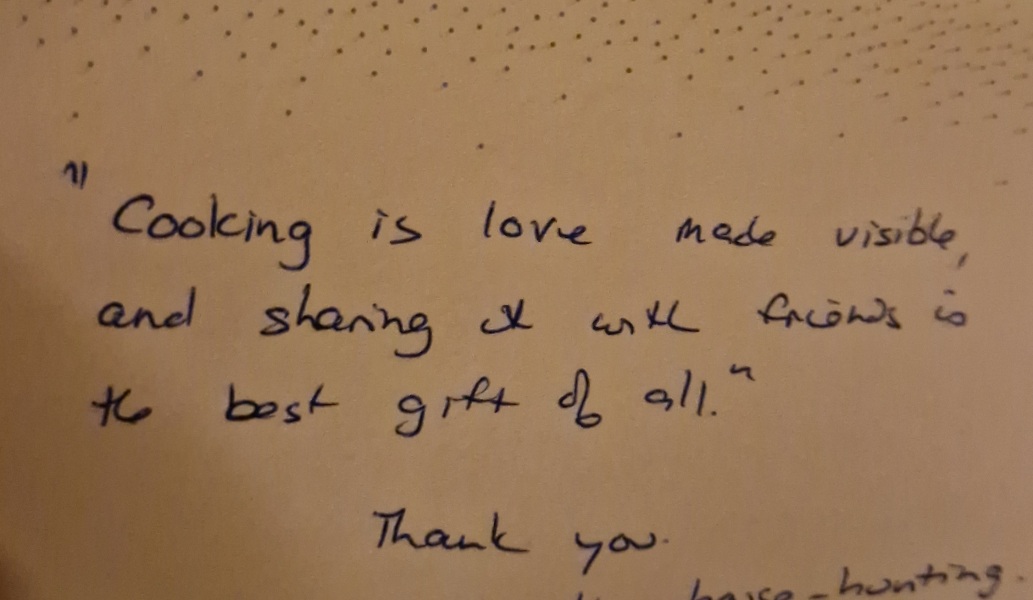 "Cooking is love made visible,
and sharing it with friends is
the best gift of all."
Thank you.
house-hunting.